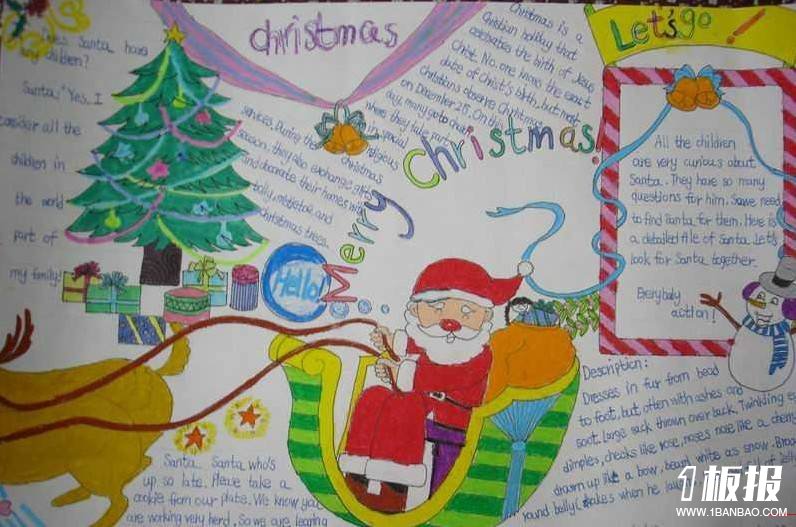 christmas
Does Santa have
children?
Santa: "Yes. I
consider all the
children in
the world
part of
my family!
Christmas is a
Christian holiday that
celebrates the birth of Jesus
Christ. No one knows the exact
date of Christ's birth, but most
Christians observe Christmas
on December 25. On this
day, many go to
special
religious
where they take part
services. During the Christmas
season, they also exchange gifts
and decorate their homes with
holly, mistletoe, and
christmas trees.
Merry christmas!
Hello!
Let's go !
All the children
are very curious about
Santa. They have so many
questions for him. So we need
to find Santa for them. Here is
a detailed file of Santa. Let's
look for Santa together.
Everybaly
action!
Description:
Dresses in fur from head
to foot, but often with ashes and
soot. Large sack thrown over back. Twinkling
dimples, cheaks like rose, noses nose like a
drawn up like a bow, beard white as snow.
round belly
when he
Santa Santa who's
up so late. Please take a
cookie from our plate. We know you
are working very herd. So we are leaving
1板报
WWW.1BANBAO.COM